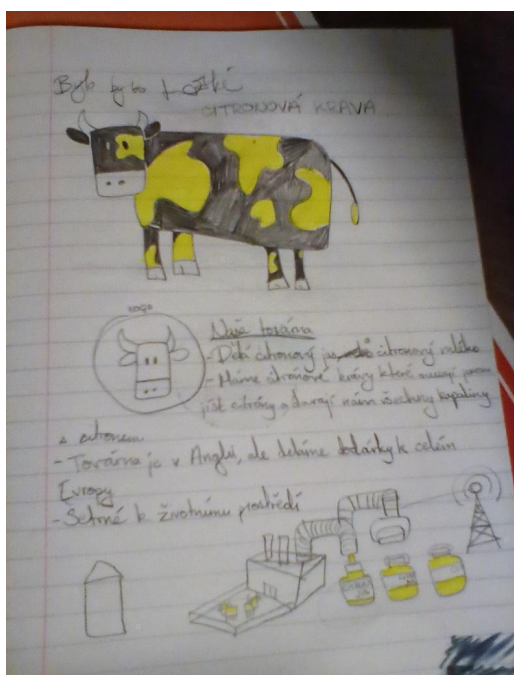 Bylo by to těžké
CITRONOVÁ KRAVA
LOGO
Naše továrna
- Dělá citronový citronový mléko
- Máme citrónové krávy které musejí jenom
jíst citróny a dávají nám všechny kapaliny
s citronem
- Továrna je v Anglii, ale děláme dodávky k celém
Evropy
- Šetrné k životnímu prostředí